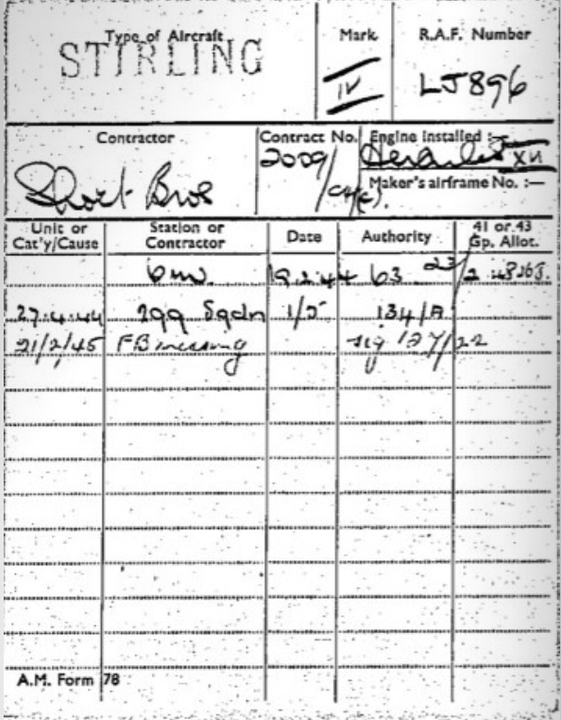 Type of Aircraft Mark R.A.F. Number
STIRLING IV LJ896
Contractor Contract No. Engine installed :—
Short Bros 2009/ Hercules XVI
Maker's airframe No. :—
Unit or Cat'y/Cause Station or Contractor Date Authority 41 or 43 Gp. Allot.
6 mu 19.2.44 63 23/2
27.4.44 299 Sqdn 1/5 134/A
21/2/45 FB missing sig 127/22
A.M. Form 78